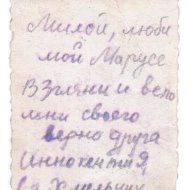 Милой, люби
мой Марусе
Взгляни и вспо
мни своего
верно друга
Иннокентия,